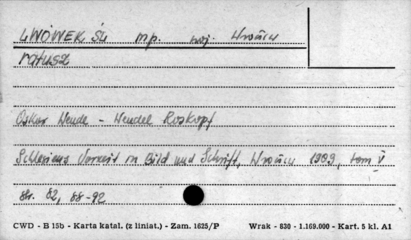 LWÓWEK ŚL. m/p. woj. Wrocław
ratusz
Oskar Wende - Wendel Roskopf
Schlesiens Vorzeit in Bild und Schrift, Wrocław 1909, tom V
str. 82, 88-92
CWD - B 15b - Karta katal. (z liniat.) - Zam. 1625/P Wrak - 830 - 1.169.000 - Kart. 5 kl. A1